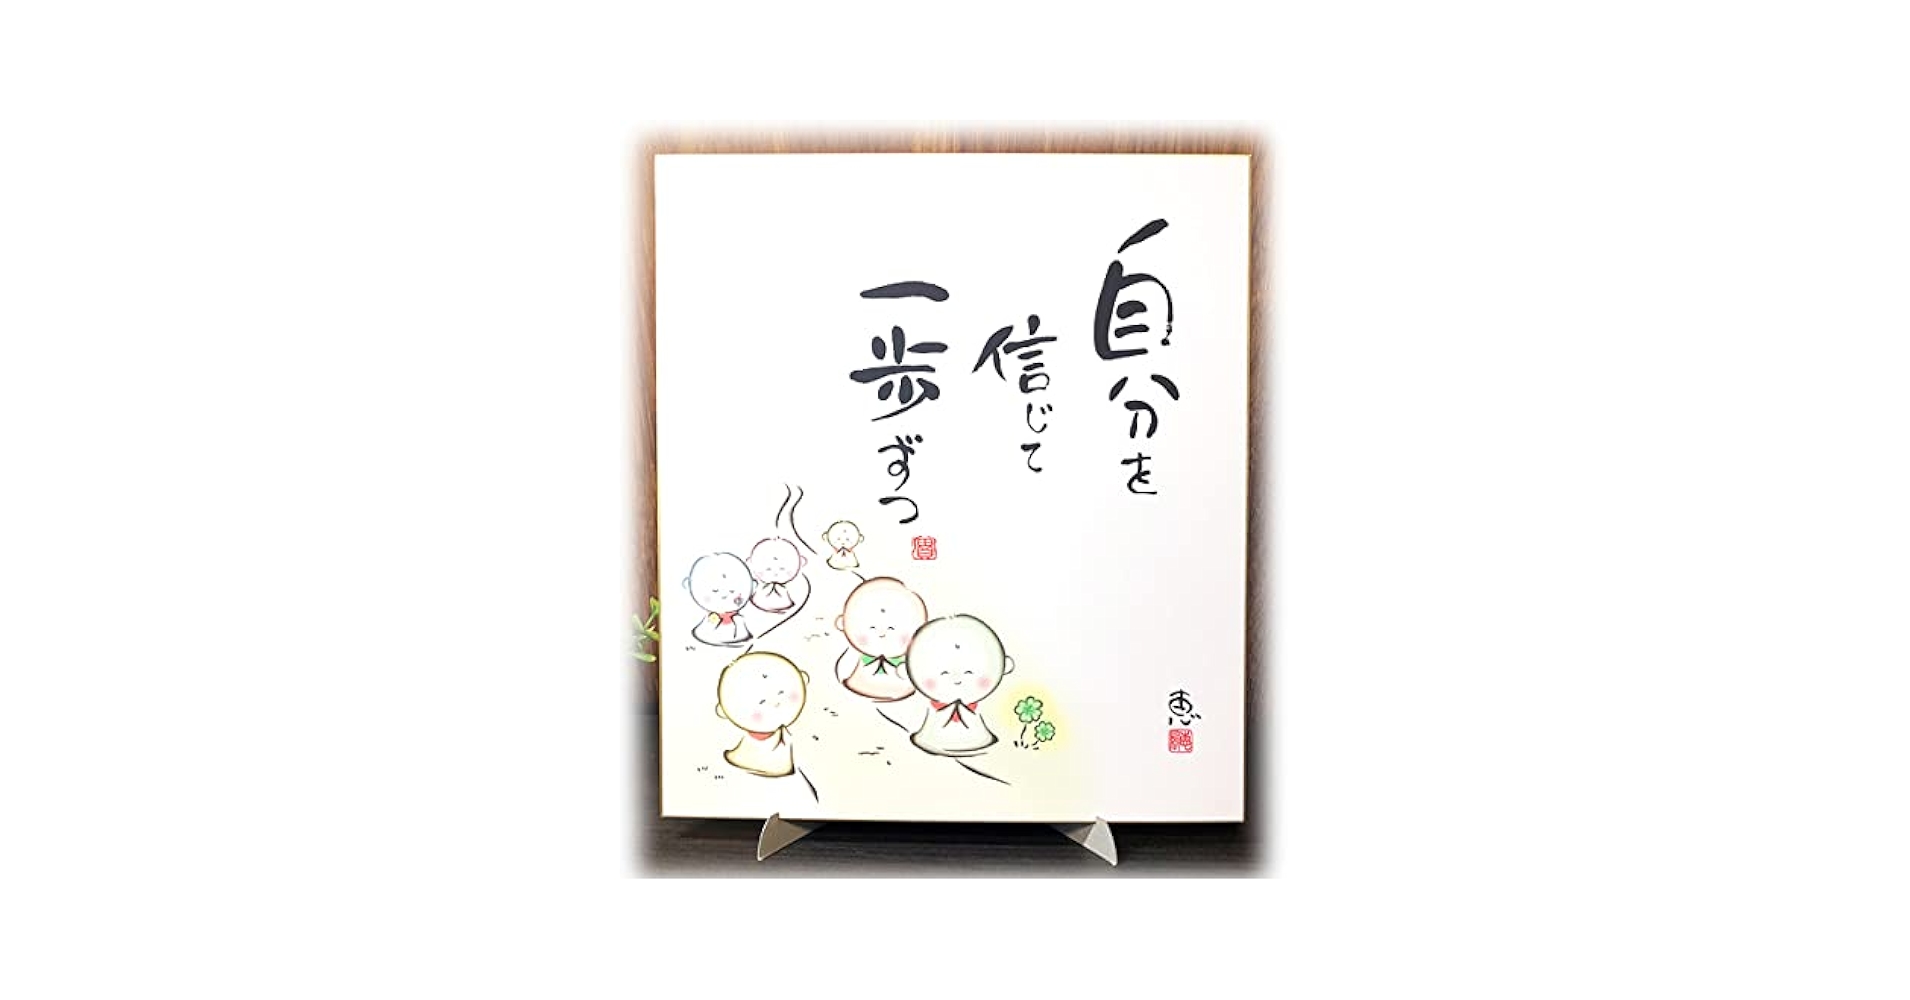 自分を
信じて
一歩ずつ
恵